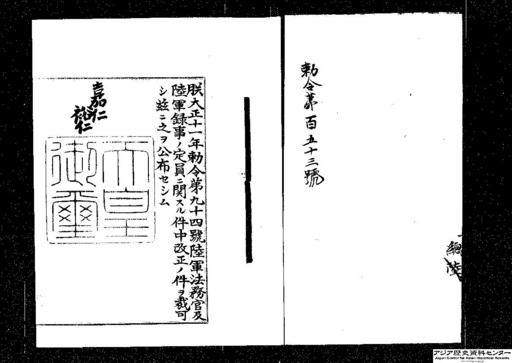 勅令第百五十三號
總陸
朕大正十一年勅令第九十四號陸軍法務官及
陸軍録事ノ定員ニ関スル件中改正ノ件ヲ裁可
シ茲ニ之ヲ公布セシム
嘉仁
裕仁
天皇
御璽
アジア歴史資料センター
Japan Center for Asian Historical Records